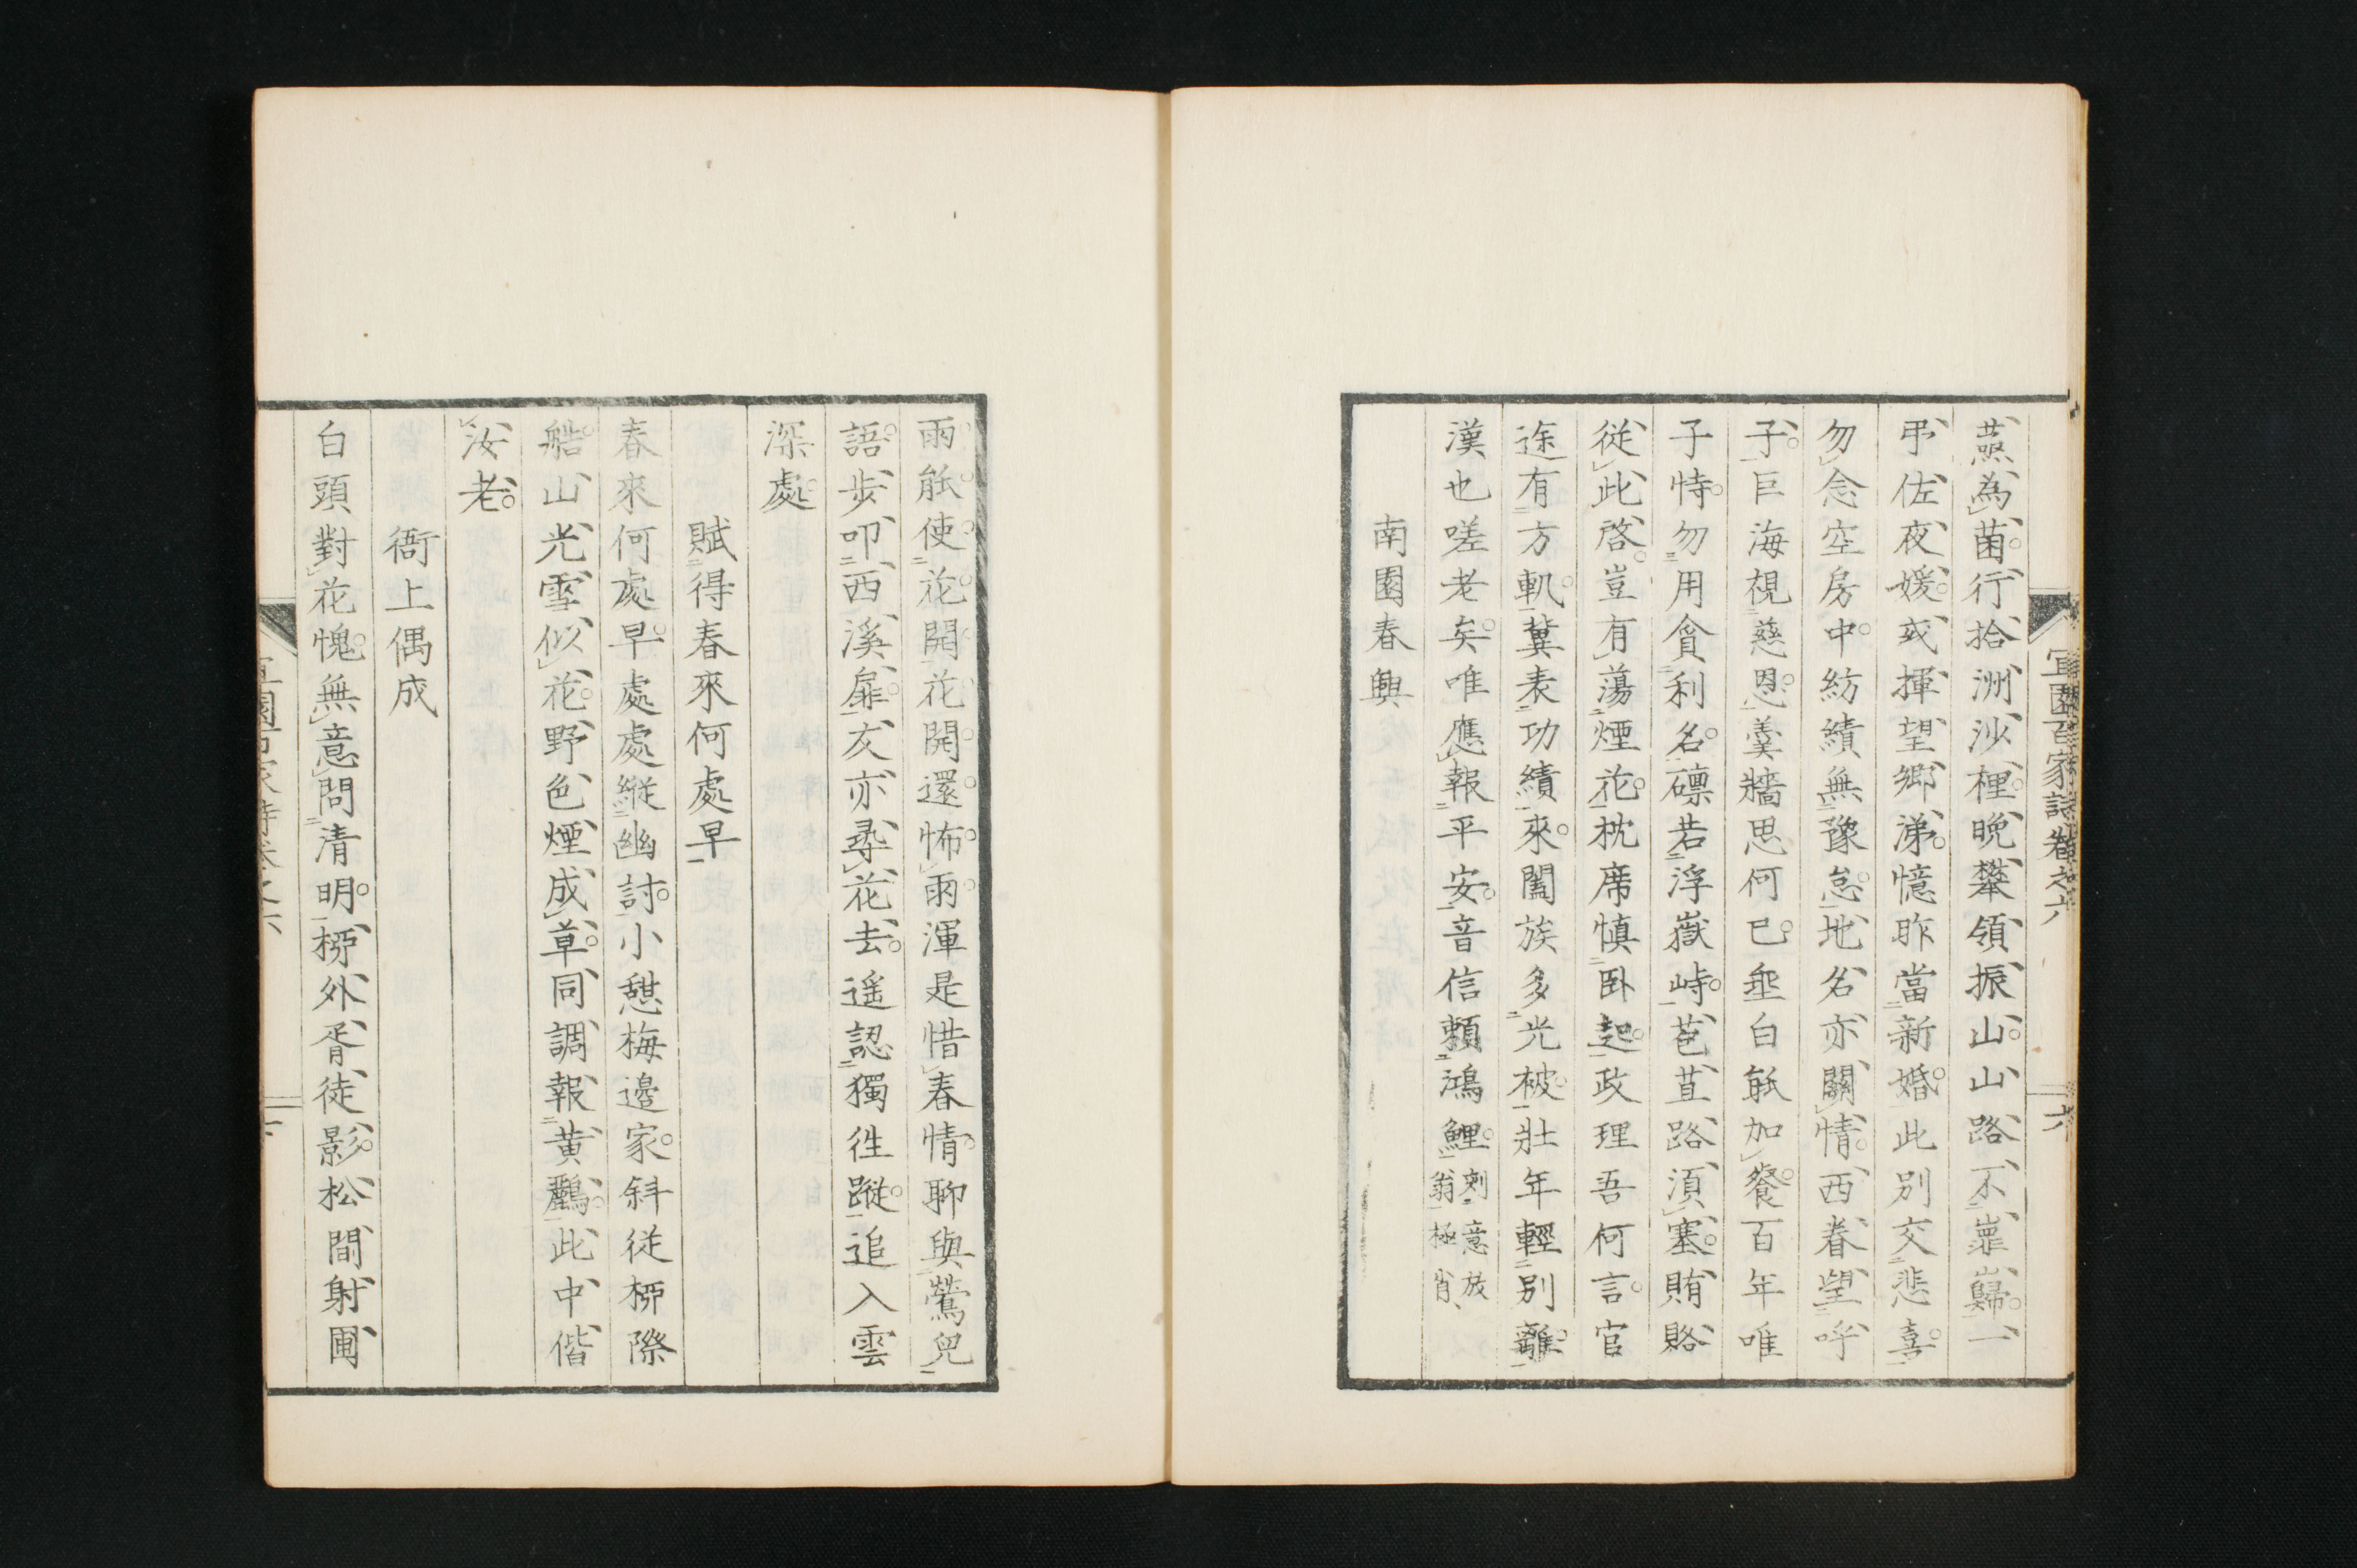 宜園百家詩卷之六
六
燕為菌行拾洲沙裡晚攀領振山山路不崋巋一
弔佐夜媛或揮望郷涕憶昨當新婚此別交悲喜
勿念空房中紡績無豫怠地名亦關情西眷望呼
子巨海視慈恩羹牆思何已亟白能加餐百年唯
子恃勿用貪利名凛若浮嶽峙苞苴路須塞賄賂
從此啓豈有蕩煙花枕席慎臥起政理吾何言官
途有方軌冀表功績來闔族多光被壯年輕別離
漢也嗟老矣唯應報平安音信頼鴻鯉
刻意放
翁極肖
南園春興
雨能使花開花開還怖雨渾是惜春情聊與鶯兒
語步叩西溪扉友亦尋花去遥認獨徃蹤追入雲
深處
賦得春來何處早
春來何處早處處縱幽討小憩梅邊家斜從柳際
船山光雪似花野色煙成草同調報黄鸝此中偕
汝老
衙上偶成
白頭對花愧無意問清明柳外胥徒影松間射圃
宜園百家詩卷之六